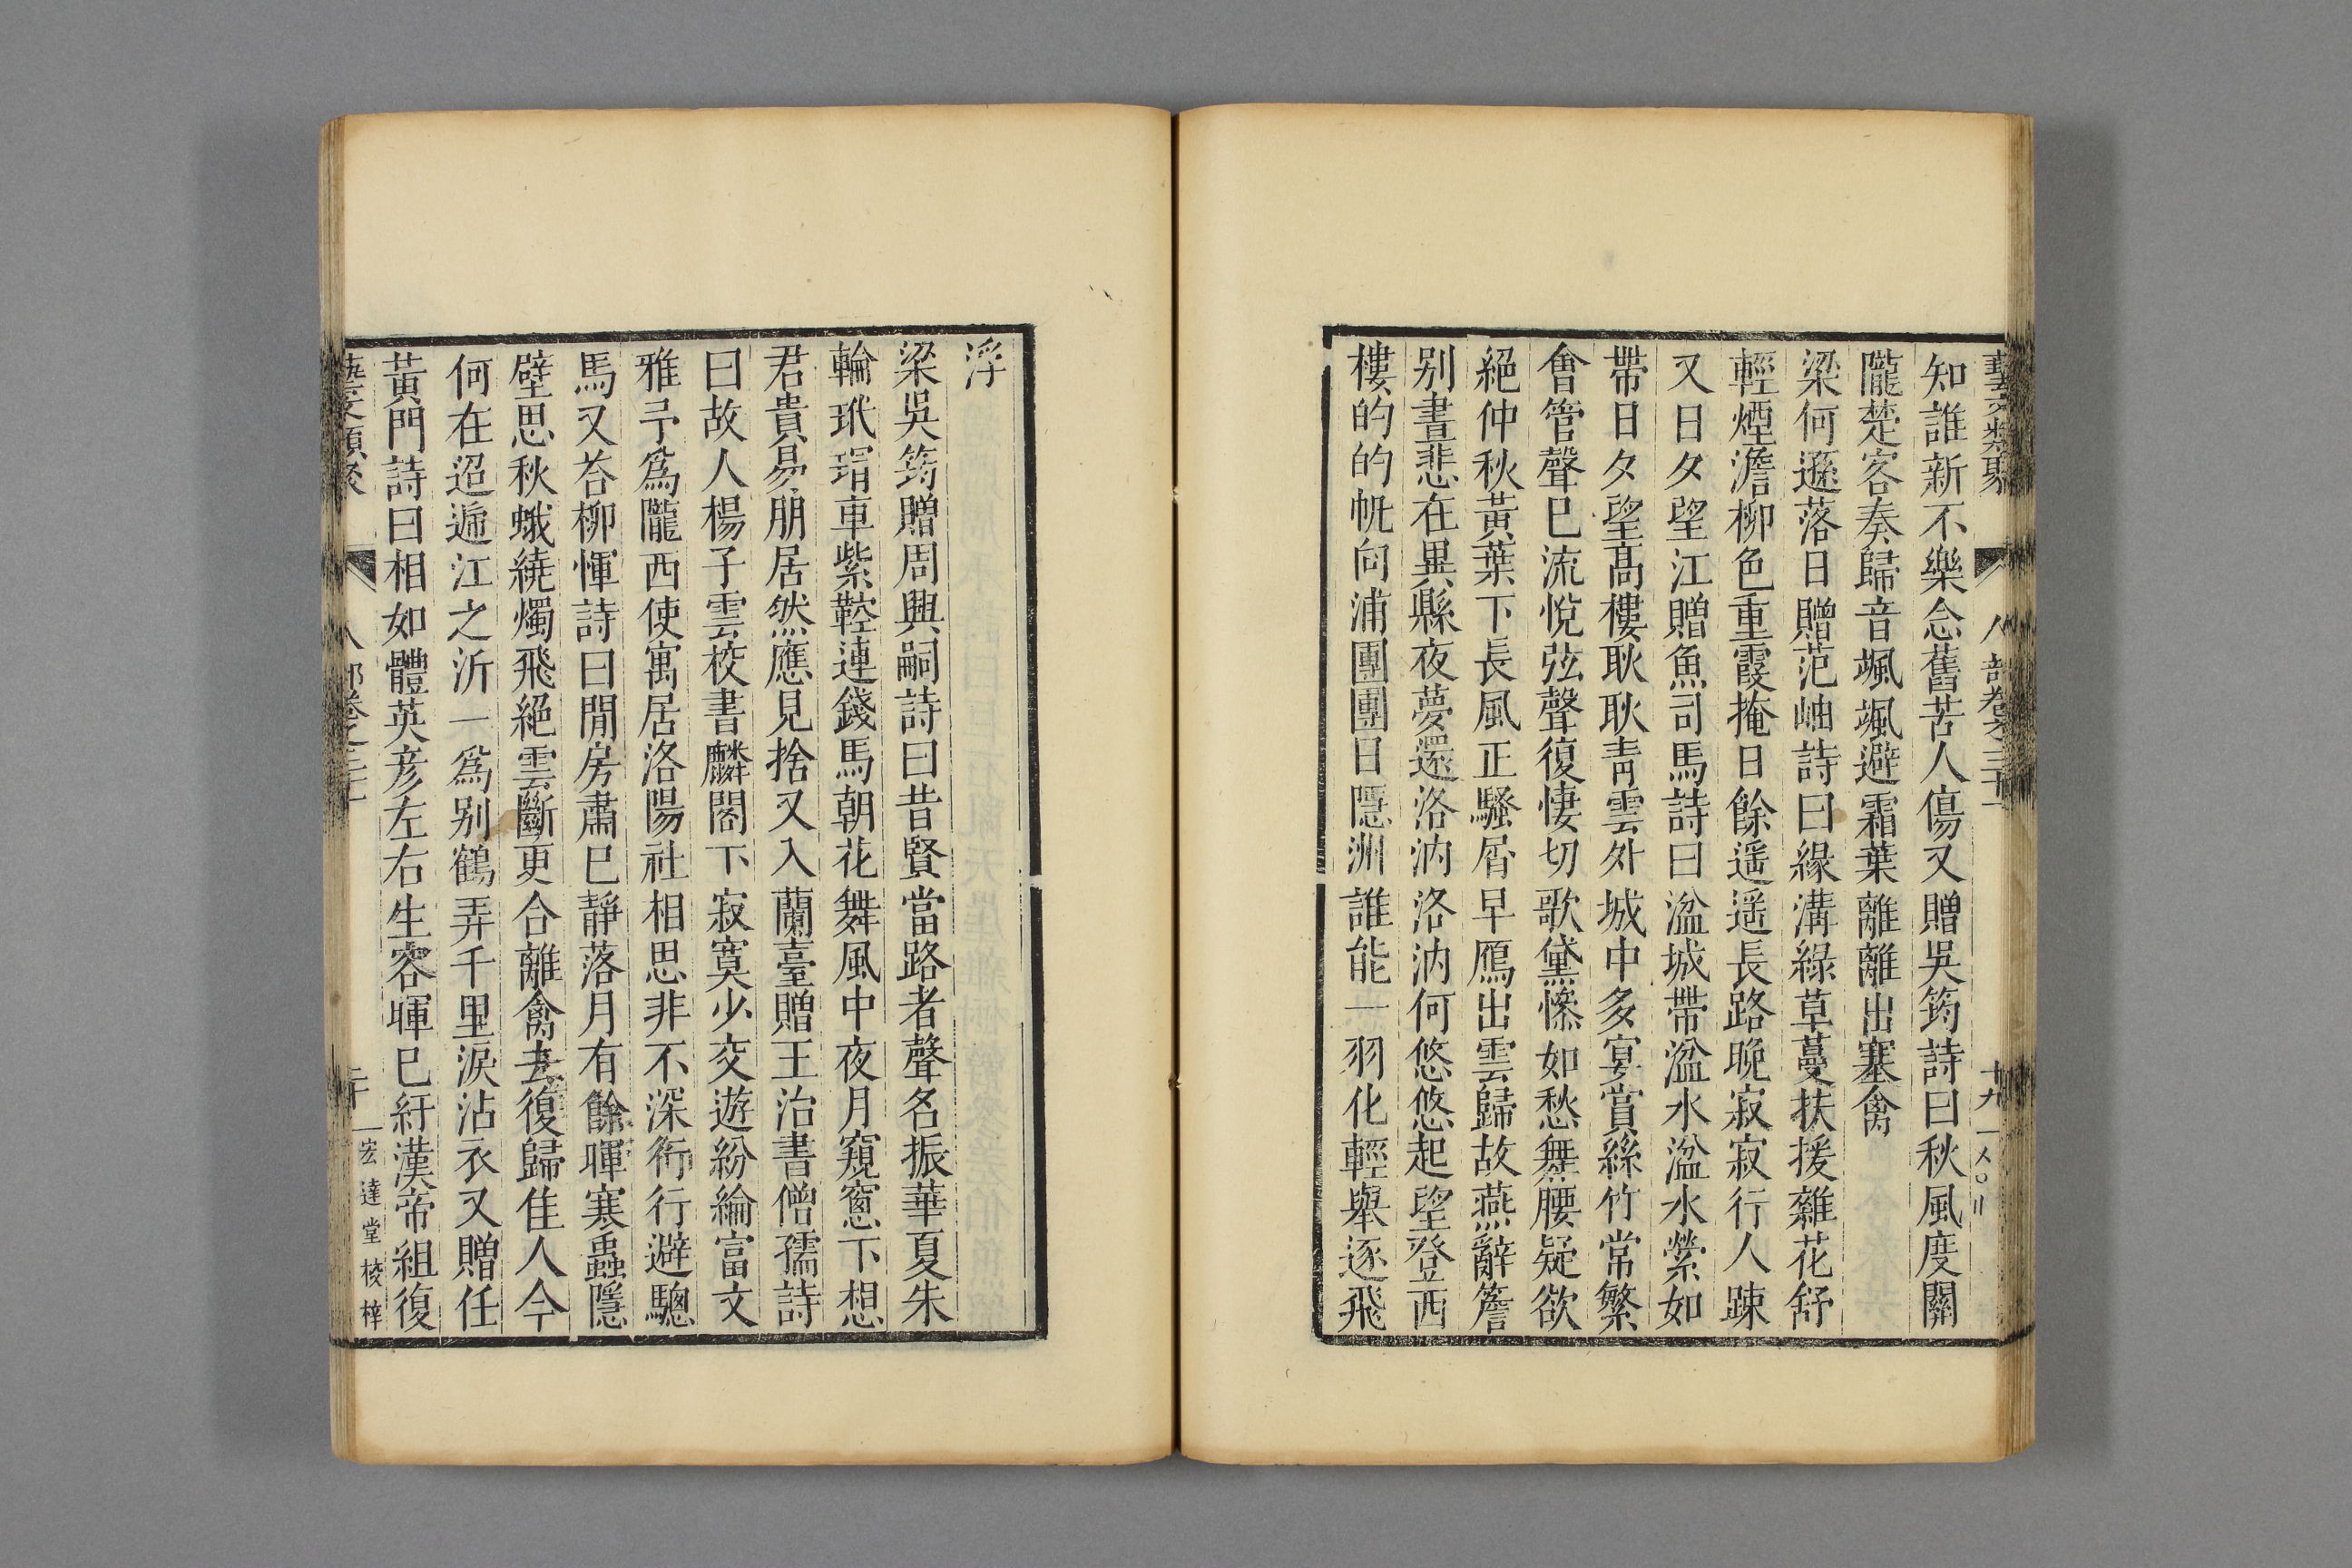 藝文類聚 人部卷之三十一 十九
知誰新不樂念舊苦人傷又贈吳筠詩曰秋風度關
隴楚客奏歸音颯颯避霜葉離離出塞禽
梁何遜落日贈范岫詩曰緣溝綠草蔓扶援雜花舒
輕煙澹柳色重霞掩日餘遥遥長路晚寂寂行人踈
又日夕望江贈魚司馬詩曰湓城帶湓水湓水縈如
帶日夕望高樓耿耿青雲外城中多宴賞絲竹常繁
會管聲已流悅弦聲復悽切歌黛慘如愁舞腰疑欲
絕仲秋黃葉下長風正騷屑早鴈出雲歸故燕辭簷
别晝悲在異縣夜夢還洛汭洛汭何悠悠起望登西
樓的的帆向浦團團日隱洲誰能一羽化輕舉逐飛
浮
梁吳筠贈周興嗣詩曰昔賢當路者聲名振華夏朱
輪玳瑁車紫鞚連錢馬朝花舞風中夜月窺窻下想
君貴易朋居然應見捨又入蘭臺贈王治書僧孺詩
曰故人楊子雲校書麟閣下寂寞少交遊紛綸富文
雅予爲隴西使寓居洛陽社相思非不深衔行避驄
馬又荅柳惲詩曰閒房肅已靜落月有餘暉寒蟲隱
壁思秋蛾繞燭飛絕雲斷更合離禽去復歸佳人今
何在迢遞江之沂一爲别鶴弄千里淚沾衣又贈任
黃門詩曰相如體英彥左右生容暉已紆漢帝組復
藝文類聚 人部卷之三十一 二十 宏達堂校梓